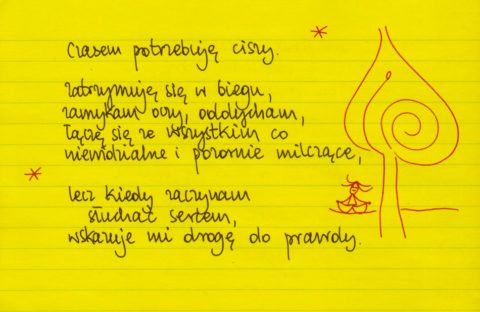 Czasem potrzebuję ciszy.
Zatrzymuję się w biegu,
zamykam oczy, oddycham,
łączę się ze wszystkim co
niewidzialne i pozornie milczące,
lecz kiedy zaczynam
słuchać sercem,
wskazuje mi drogę do prawdy.